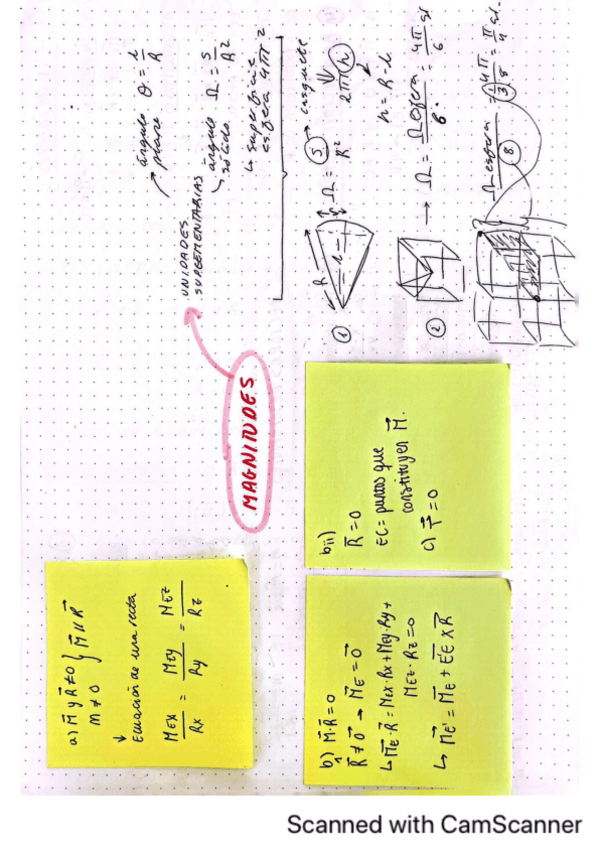 MAGNITUDES
UNIDADES
SUPLEMENTARIAS
ángulo
plano
θ = l/R
ángulo
sólido
Ω = S/R²
↳ superficie
esfera 4πr²
① R
Ω = S/R² → casquete
2πR(h)
h = R - l
② → Ω = Ω esfera/6 = 4π/6 sr
Ω esfera/8 = 4π/8 = π/ sr.
a) M⃗ y R⃗ ≠ 0 } M⃗ ∥ R⃗
M ≠ 0
↓
Ecuación de una recta
MEx/Rx = MEy/Ry = MEz/Rz
b) M⃗·R⃗ = 0
R⃗ ≠ 0⃗ → M⃗E = 0⃗
↳ M⃗E·R⃗ = MEx·Rx + MEy·Ry +
MEz·Rz = 0
↳ M⃗E' = M⃗E + E⃗'E x R⃗
bii)
R⃗ = 0
EC = puntos que
constituyen M⃗.
c) r⃗ = 0
Scanned with CamScanner